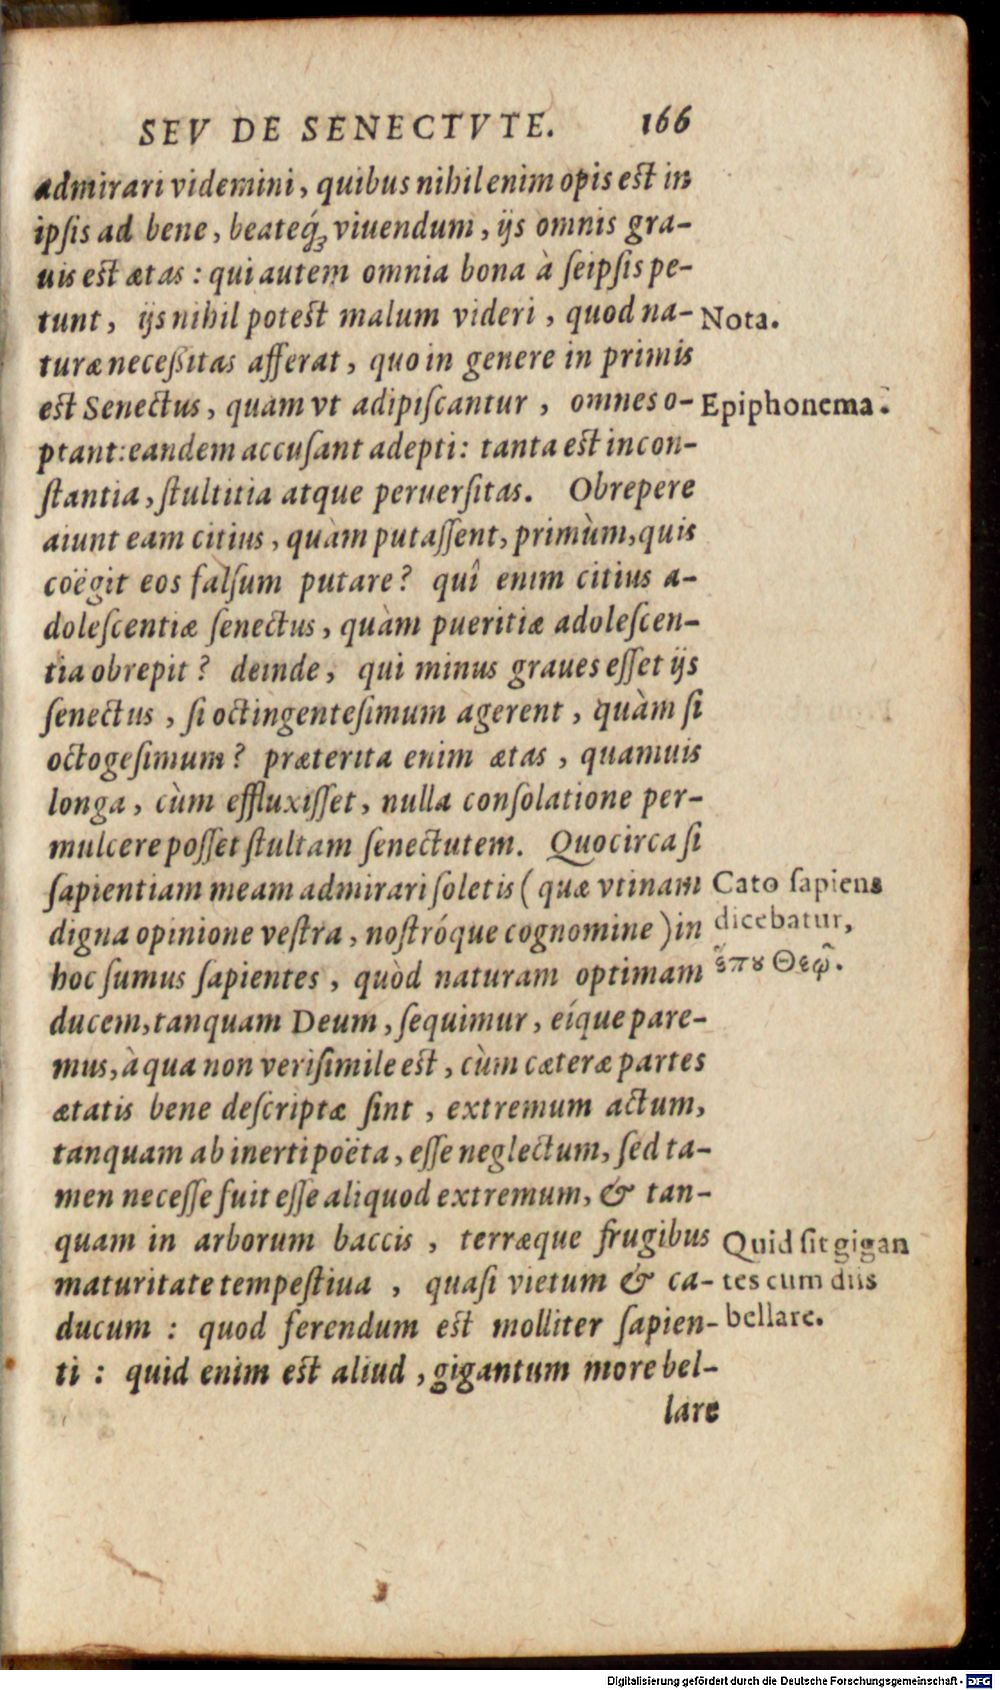 SEV DE SENECTVTE. 166
admirari videmini, quibus nihil enim opis est in
ipſis ad bene, beateq́ꝫ viuendum, ijs omnis gra-
uis est ætas : qui autem omnia bona à ſeipſis pe-
tunt, ijs nihil potest malum videri, quod na-
Nota.
turæ neceßitas afferat, quo in genere in primis
est Senectus, quam vt adipiſcantur, omnes o-
Epiphonema.
ptant: eandem accuſant adepti: tanta est incon-
ſtantia, ſtultitia atque peruerſitas. Obrepere
aiunt eam citius, quàm putaſſent, primùm, quis
coëgit eos falſum putare? quî enim citius a-
doleſcentiæ ſenectus, quàm pueritiæ adoleſcen-
tia obrepit? deinde, qui minus graues eſſet ijs
ſenectus, ſi octingenteſimum agerent, quàm ſi
octogeſimum? præterita enim ætas, quamuis
longa, cùm effluxiſſet, nulla conſolatione per-
mulcere poſſet ſtultam ſenectutem. Quocirca ſi
ſapientiam meam admirari ſoletis (quæ vtinam
Cato ſapiens
digna opinione veſtra, noſtróque cognomine) in
dicebatur,
hoc ſumus ſapientes, quòd naturam optimam
ducem, tanquam Deum, ſequimur, eíque pare-
mus, à qua non veriſimile est, cùm cæteræ partes
ætatis bene deſcriptæ ſint, extremum actum,
tanquam ab inerti poëta, eſſe neglectum, ſed ta-
men neceſſe fuit eſſe aliquod extremum, & tan-
quam in arborum baccis, terræque frugibus
Quid ſit gigan
maturitate tempeſtiua, quaſi vietum & ca-
tes cum diis
ducum : quod ferendum est molliter ſapien-
bellare.
ti : quid enim est aliud, gigantum more bel-
lare
Digitalisierung gefördert durch die Deutsche Forschungsgemeinschaft - DFG